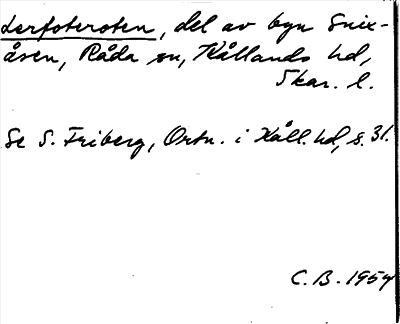 Lerfoteroten, del av byn Snix-
åsen, Råda sn, Kållands hd,
Skar. l.
Se S. Friberg, Ortn. i Kåll. hd, s. 31.
C. B. 1954